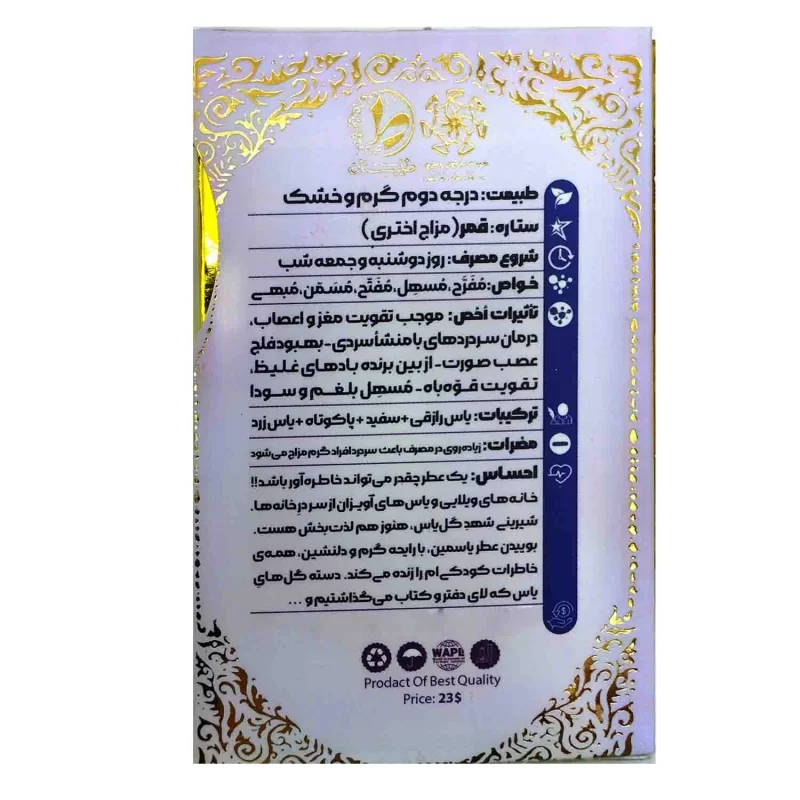 طبیعت: درجه دوم گرم و خشک
ستاره: قمر (مزاج اختری)
شروع مصرف: روز دوشنبه و جمعه شب
خواص: مُفَرَّح، مُسهِل، مُفَتّح، مُسَمّن، مُبهی
تأثیرات أخص: موجب تقویت مغز و اعصاب،
درمان سردردهای با منشأ سردی - بهبود فلج
عصب صورت - از بین برنده بادهای غلیظ،
تقویت قوّه باه - مُسهِل بلغم و سودا
ترکیبات: یاس رازقی + سفید + پاکوتاه + یاس زرد
مضرات: زیاده روی در مصرف باعث سردرد افراد گرم مزاج می‌شود
احساس: یک عطر چقدر می‌تواند خاطره‌آور باشد!!
خانه‌های ویلایی و یاس‌های آویزان از سر درِ خانه‌ها.
شیرینی شهدِ گل یاس، هنوز هم لذت‌بخش هست.
بوییدن عطر یاسمین، با رایحه گرم و دلنشین، همه‌ی
خاطرات کودکی‌ام را زنده می‌کند. دسته گل‌هایِ
یاس که لای دفتر و کتاب می‌گذاشتیم و ...
WAPI
Prodact Of Best Quality
Price: 23$